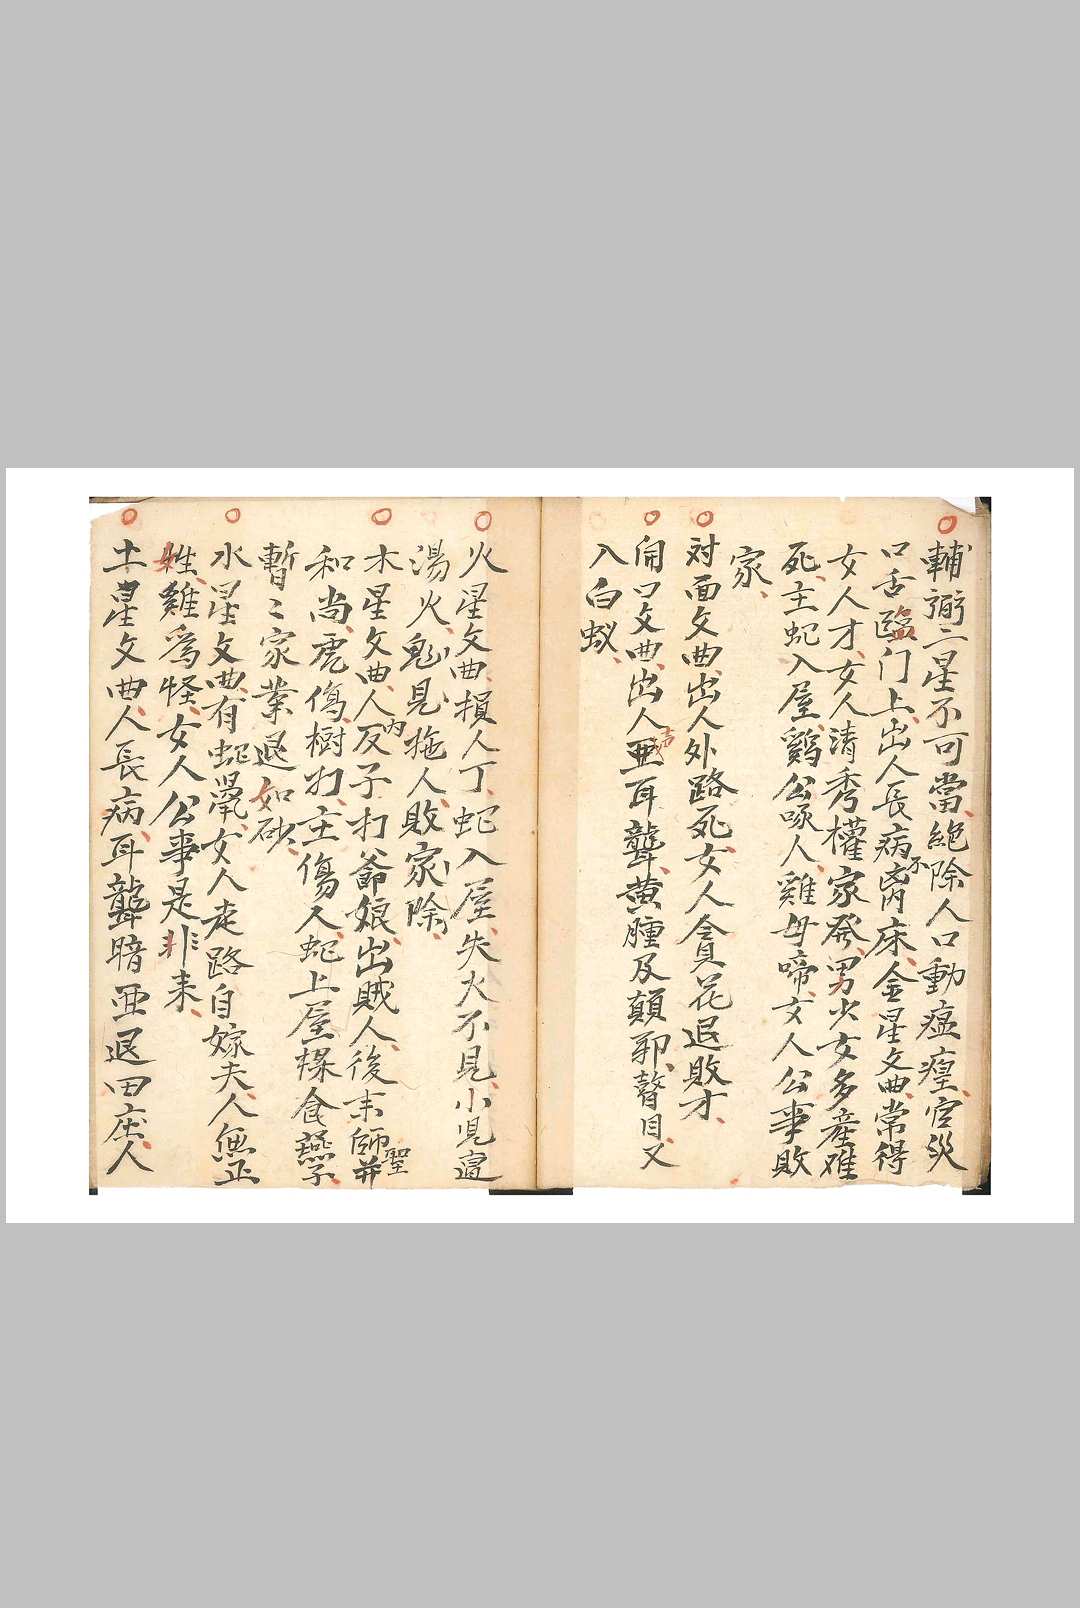 輔弼二星不可當絕除人口動瘟瘟官災
口舌臨门上出人長病不离床金星文曲常得
女人才女人清秀權家發男少女多產难
死主蛇入屋鷄公啄人雞母啼女人公事敗
家
対面文曲出人外路死女人貪花退敗才
開口文曲出人亜耳聾黄腫及顛邪瞽目又
入白蚁
火星文曲損人丁蛇入屋失火不見小児逼
湯火鬼見拖人敗家除
木星文曲人反子打爺娘出賊人後来師并
和尚虎傷樹打主傷人蛇上屋樑食燕子
暫〻家業退如砂
水星文曲有蛇鼈女人走路自嫁夫人無正
姓雞為怪女人公事是非来
土星文曲人長病耳聾暗亜退田庄人